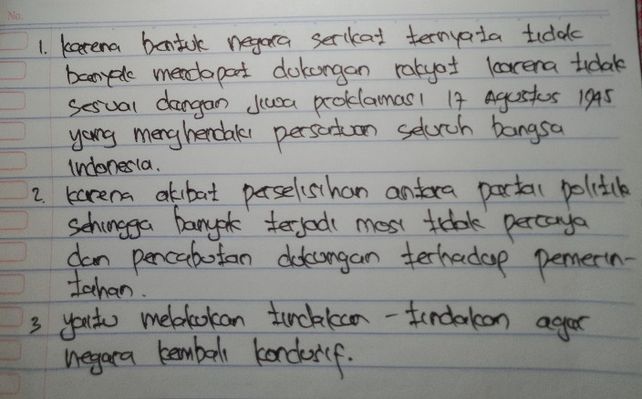 No.
1. karena bentuk negara serikat ternyata tidak
banyak mendapat dukungan rakyat karena tidak
sesuai dengan jiwa proklamasi 17 Agustus 1945
yang menghendaki persatuan seluruh bangsa
Indonesia.
2. karena akibat perselisihan antara partai politik
sehingga banyak terjadi mosi tidak percaya
dan pencabutan dukungan terhadap pemerin-
tahan.
3 yaitu melakukan tindakan-tindakan agar
negara kembali kondusif.